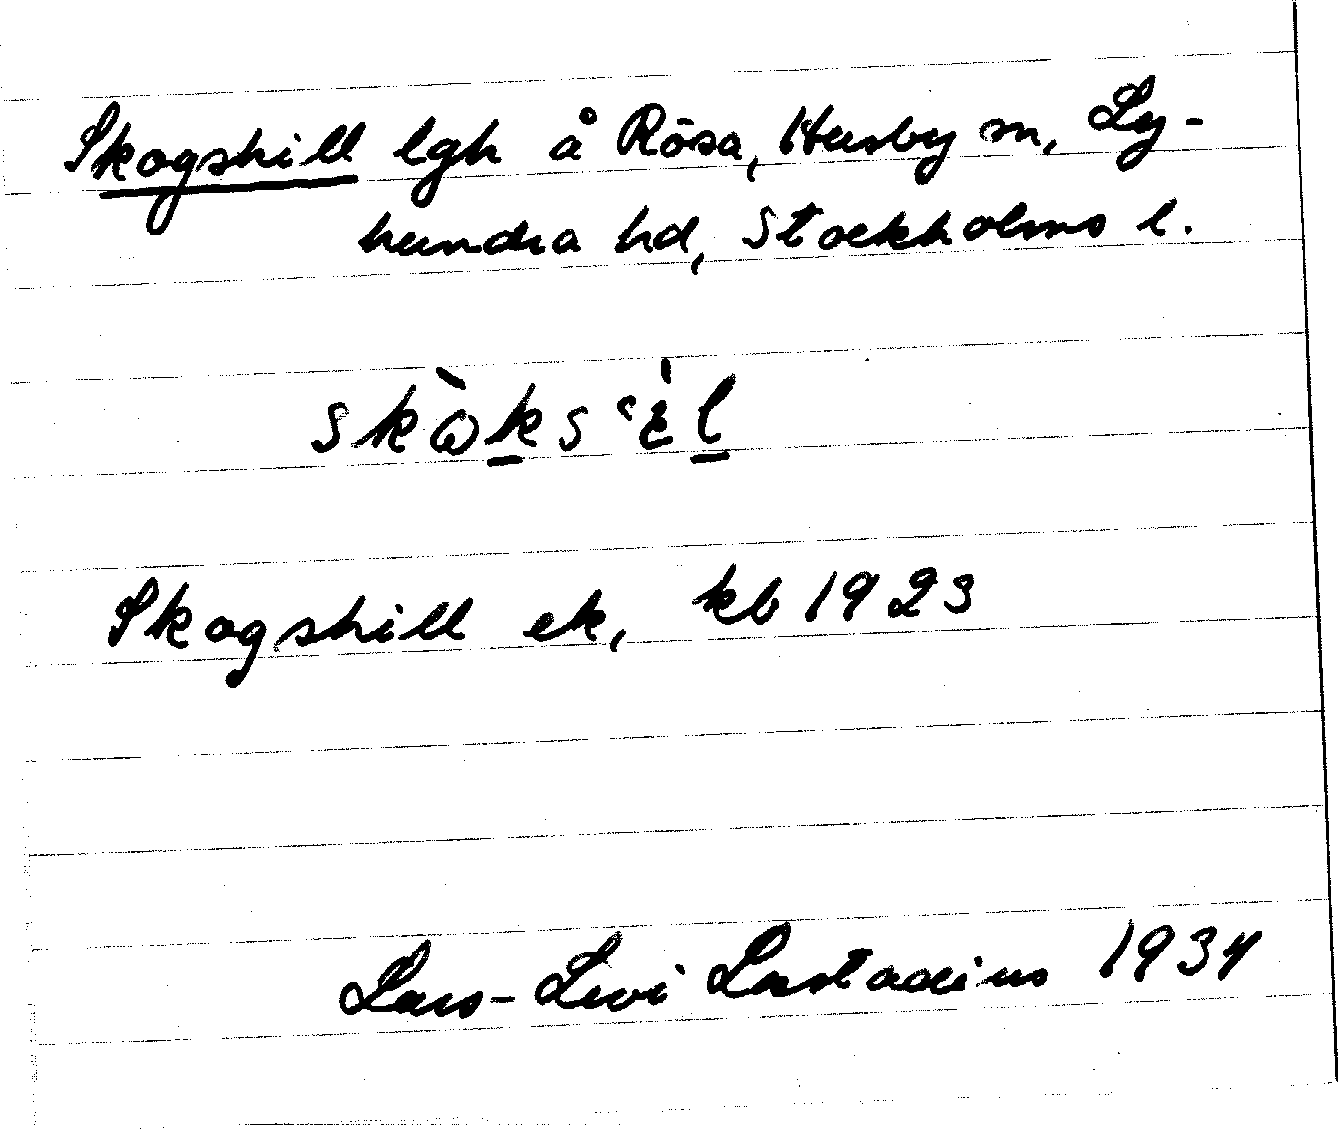 Skogshill lgh å Rösa, Husby sn, Ly-
hundra hd, Stockholms l.
Skogshill ek, kb 1923
Lars-Levi Læstadius 1934